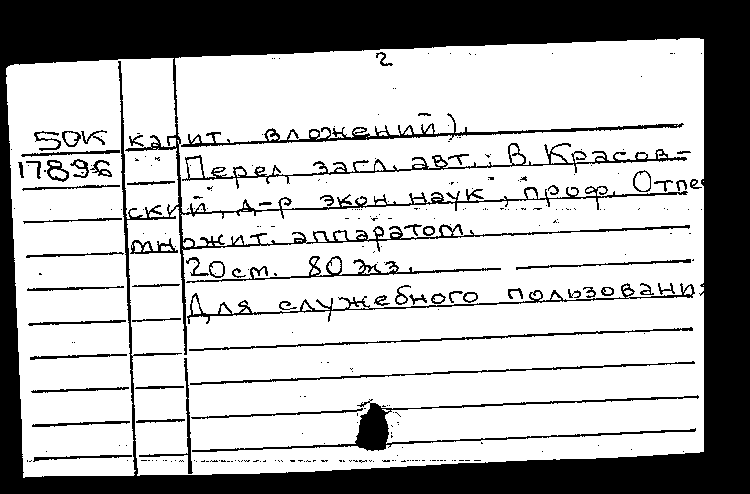 2
50К капит. вложений).
17896 Перед загл. авт.: В. Красов-
ский, д-р экон. наук, проф. Отпеч
множит. аппаратом.
20 см. 80 экз.
Для служебного пользования